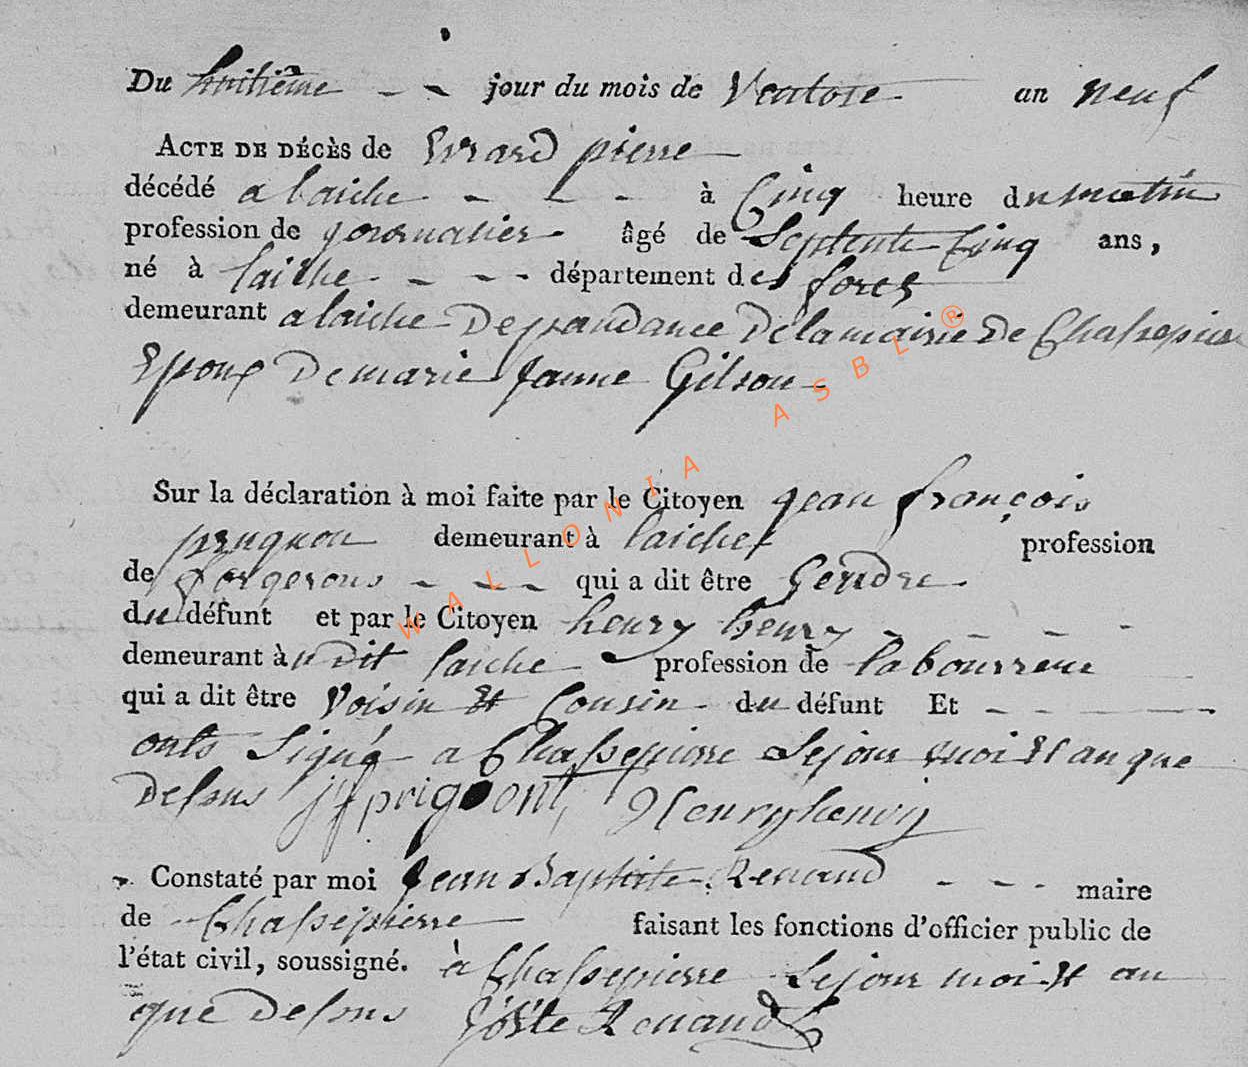 Du huitième - - jour du mois de Ventose an neuf
ACTE DE DÉCÈS de Evrard pierre
décédé a laiche - - - à Cinq heure du matin
profession de journalier âgé de Septente Cinq ans,
né à laiche - - - département des forets
demeurant a laiche Dependance De la mairie De Chassepierre
Epoux De marie Janne Gilson
Sur la déclaration à moi faite par le Citoyen jean françois
prugnon demeurant à laiche profession
de forgerons - - - qui a dit être Gendre
du défunt et par le Citoyen henry henry - - - -
demeurant àu Dit laiche profession de labourreur
qui a dit être Voisin Et Cousin du défunt Et - - - -
onts Signé a Chassepierre Lejour moi Et an que
Dessus jf prignont Henry henry
Constaté par moi Jean Baptiste Renaud - - - maire
de Chassepierre faisant les fonctions d'officier public de
l'état civil, soussigné. à Chassepierre Lejour moi Et an
que Dessus Renaud
WALLONIA ASBL ®